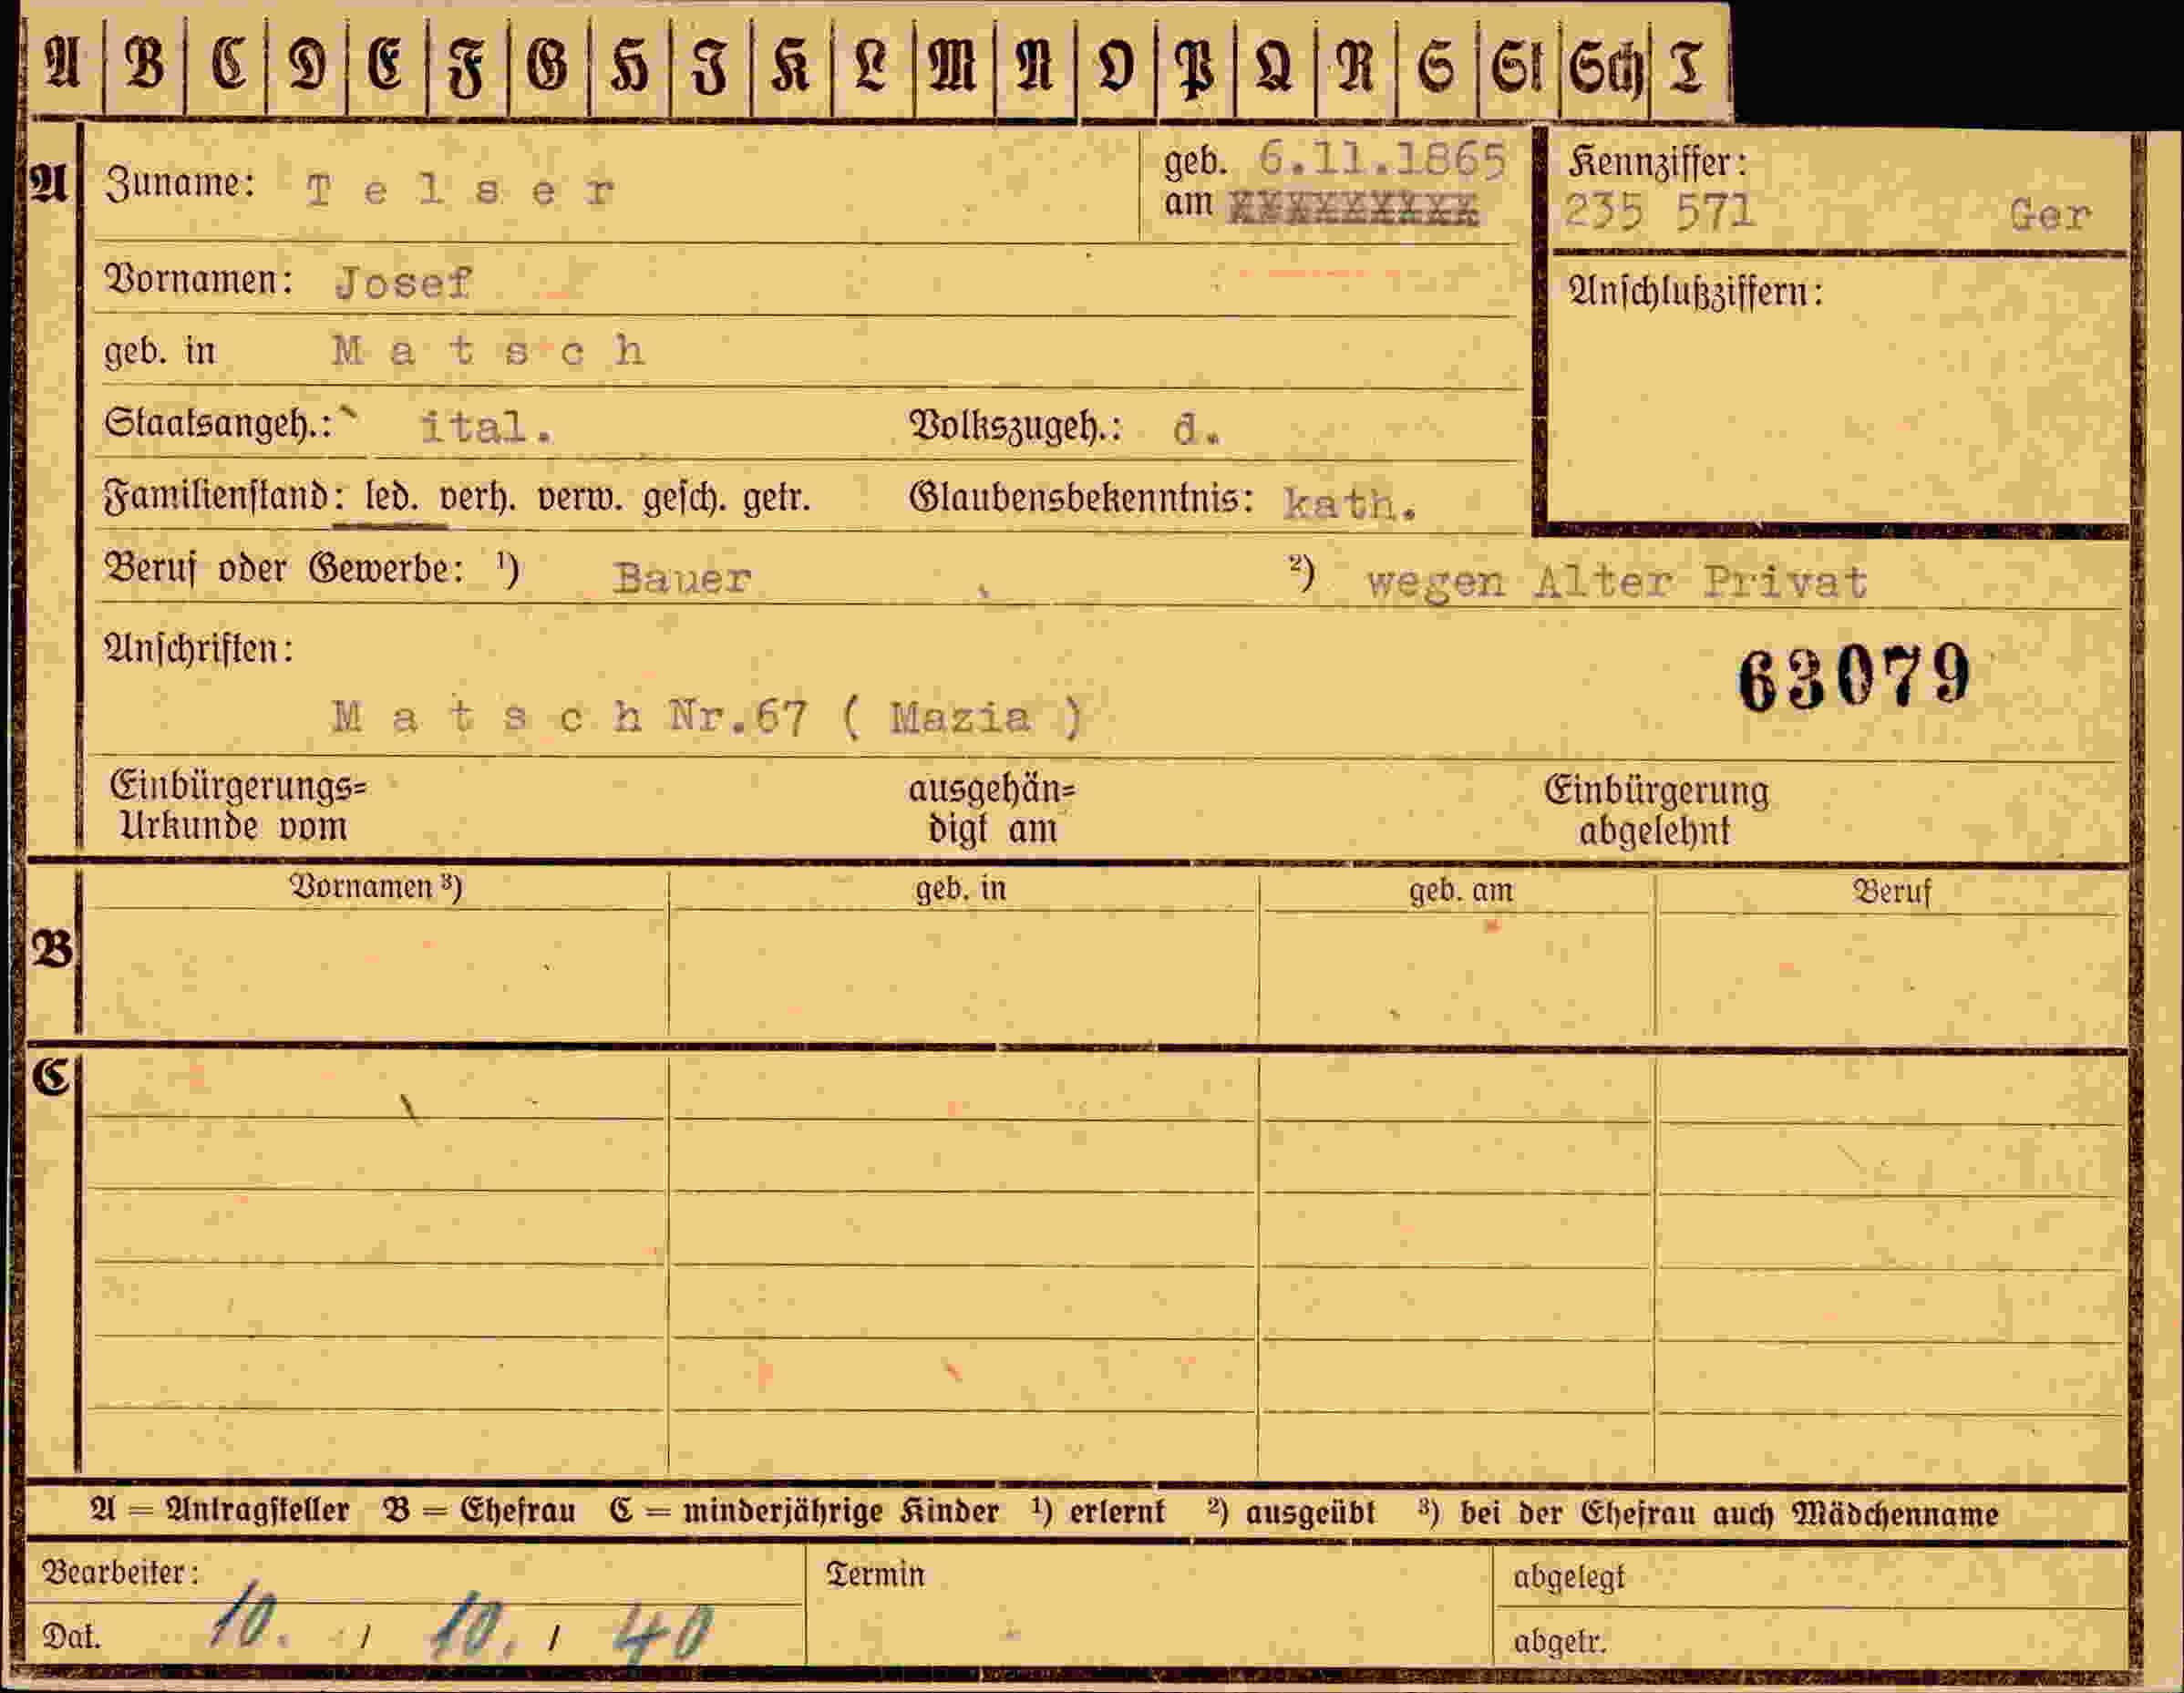 A B C D E F G H J K L M N O P Q R S St Sch T
A Zuname: Telser geb. am 6.11.1865 Kennziffer: 235 571 Ger
Vornamen: Josef Anschlußziffern:
geb. in Matsch
Staatsangeh.: ital. Volkszugeh.: d.
Familienstand: led. verh. verw. gesch. getr. Glaubensbekenntnis: kath.
Beruf oder Gewerbe: ¹) Bauer ²) wegen Alter Privat
Anschriften: 63079
Matsch Nr.67 ( Mazia )
Einbürgerungs= ausgehän= Einbürgerung
Urkunde vom digt am abgelehnt
Vornamen ³) geb. in geb. am Beruf
B
C
A = Antragsteller B = Ehefrau C = minderjährige Kinder ¹) erlernt ²) ausgeübt ³) bei der Ehefrau auch Mädchenname
Bearbeiter: Termin abgelegt
Dat. 10. / 10. / 40 abgetr.